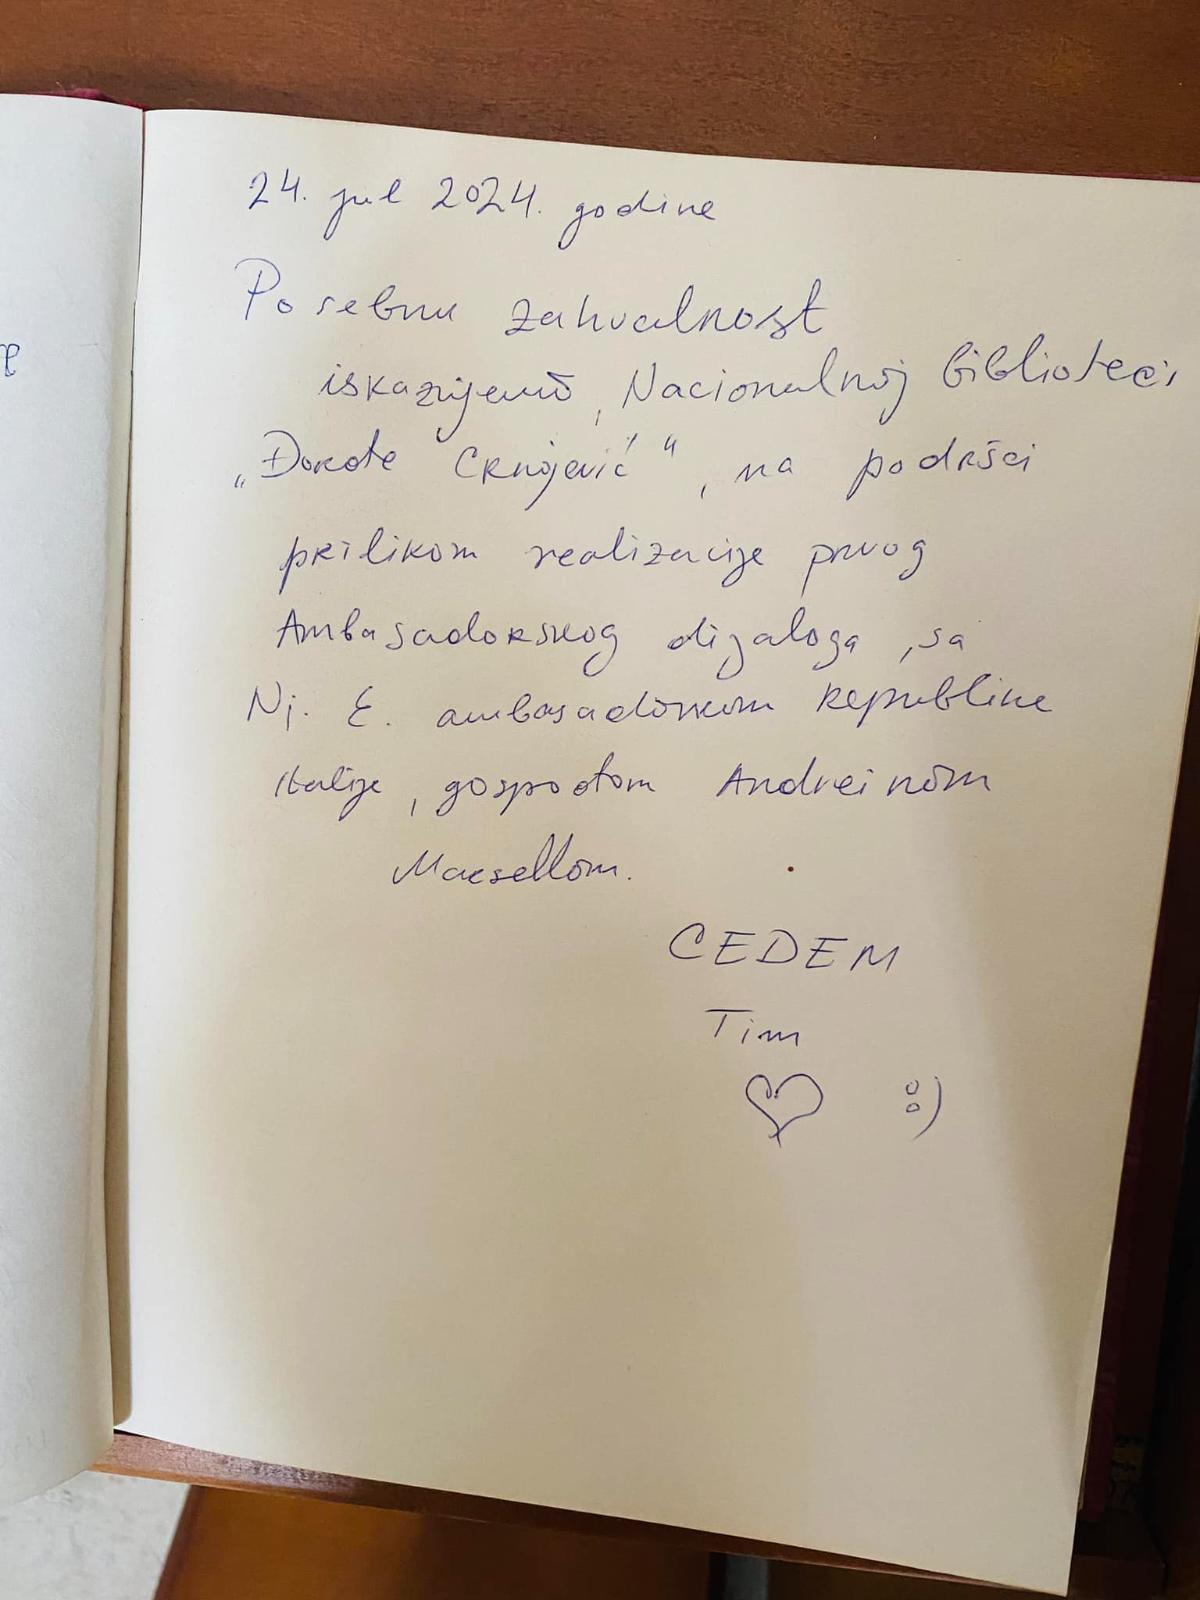 24. jul 2024. godine
Posebnu zahvalnost
iskazujemo, Nacionalnoj biblioteci,
„Đurđe Crnojević“, na podršci
prilikom realizacije prvog
Ambasadorskog dijaloga, sa
Nj. E. ambasadorkom Republike
Italije, gospođom Andreinom
Marsellom.
CEDEM
Tim
♡ :)